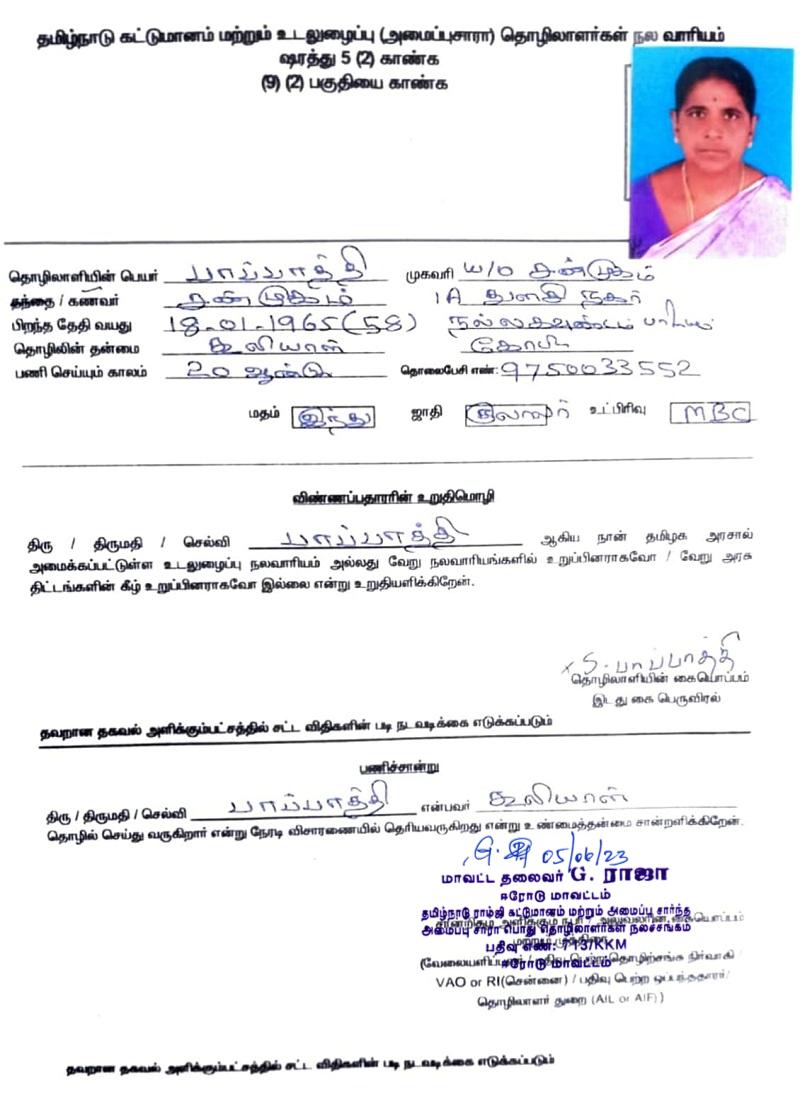 தமிழ்நாடு கட்டுமானம் மற்றும் உடலுழைப்பு (அமைப்புசாரா) தொழிலாளர்கள் நல வாரியம்
ஷரத்து 5 (2) காண்க
(9) (2) பகுதியை காண்க
தொழிலாளியின் பெயர் பாப்பாத்தி முகவரி W/O சண்முகம்
தந்தை / கணவர் சண்முகம் 1A துளசி நகர்
பிறந்த தேதி வயது 18-01-1965 (58) நல்லகவுண்டம் பாளையம்
தொழிலின் தன்மை கூலியாள் கோபி
பணி செய்யும் காலம் 20 ஆண்டு தொலைபேசி எண்: 9750033552
மதம் இந்து ஜாதி குலாளர் உட்பிரிவு MBC
விண்ணப்பதாரரின் உறுதிமொழி
திரு / திருமதி / செல்வி பாப்பாத்தி ஆகிய நான் தமிழக அரசால்
அமைக்கப்பட்டுள்ள உடலுழைப்பு நலவாரியம் அல்லது வேறு நலவாரியங்களில் உறுப்பினராகவோ / வேறு அரசு
திட்டங்களின் கீழ் உறுப்பினராகவோ இல்லை என்று உறுதியளிக்கிறேன்.
S. பாப்பாத்தி
தொழிலாளியின் கையொப்பம்
இடது கை பெருவிரல்
தவறான தகவல் அளிக்கும்பட்சத்தில் சட்ட விதிகளின் படி நடவடிக்கை எடுக்கப்படும்
பணிச்சான்று
திரு / திருமதி / செல்வி பாப்பாத்தி என்பவர் கூலியாள்
தொழில் செய்து வருகிறார் என்று நேரடி விசாரணையில் தெரியவருகிறது என்று உண்மைத்தன்மை சான்றளிக்கிறேன்.
05/06/23
மாவட்ட தலைவர் G. ராஜா
ஈரோடு மாவட்டம்
தமிழ்நாடு ராம்ஜி கட்டுமானம் மற்றும் அமைப்பு சார்ந்த
அமைப்பு சாரா பொது தொழிலாளர்கள் நலச்சங்கம்
பதிவு எண்: 713/KKM
ஈரோடு மாவட்டம்
VAO or RI(சென்னை) / பதிவு பெற்ற ஒப்பந்ததாரர்/
தொழிலாளர் துறை (AIL or AIF))
தவறான தகவல் அளிக்கும்பட்சத்தில் சட்ட விதிகளின் படி நடவடிக்கை எடுக்கப்படும்